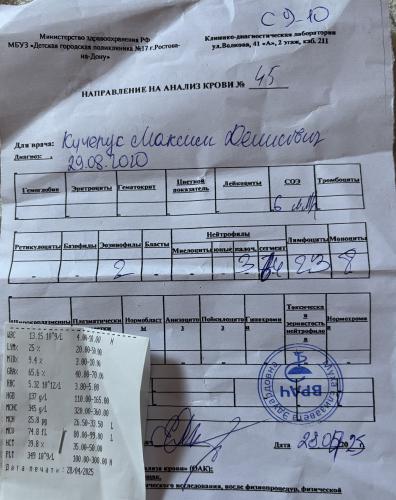 С 9-10
Министерство здравоохранения РФ
МБУЗ «Детская городская поликлиника №17 г.Ростова-
на-Дону»
Клинико-диагностическая лаборатория
ул.Волкова, 41 «А», 2 этаж, каб. 211
НАПРАВЛЕНИЕ НА АНАЛИЗ КРОВИ № 45
Для врача: Кучерук Максим Денисович
Диагноз: 29.08.2020
Гемоглобин Эритроциты Гематокрит Цветной показатель Лейкоциты СОЭ Тромбоциты
6 мм/ч
Ретикулоциты Базофилы Эозинофилы Бласты Нейтрофилы Лимфоциты Моноциты
Миелоциты юные палоч. сегмент
- - 2 - - - 3 64 23 8
Плазматически Нормобласты Анизоцитоз Пойкилоцитоз Гипохромия Токсическая зернистость нейтрофилов Нормохромия
WBC 13.15 10^9/L 4.00-10.00 H
LYM% 25 % 20.00-50.00
MID% 9.4 %
GRA% 65.6 % 40.00-70.00
RBC 5.32 10^12/L 3.80-5.80
HGB 137 g/L 110.00-165.00
MCHC 345 g/L 320.00-360.00
MCH 25.8 pg 26.50-33.50 L
MCV 74.8 fL 80.00-99.00 L
HCT 39.8 % 35.00-50.00
PLT 349 10^9/L 100.00-300.00 H
Дата печати: 28/04/2025
ВРАЧ
Дата
анализа крови (ОАК):
исследования, после физиопроцедур,